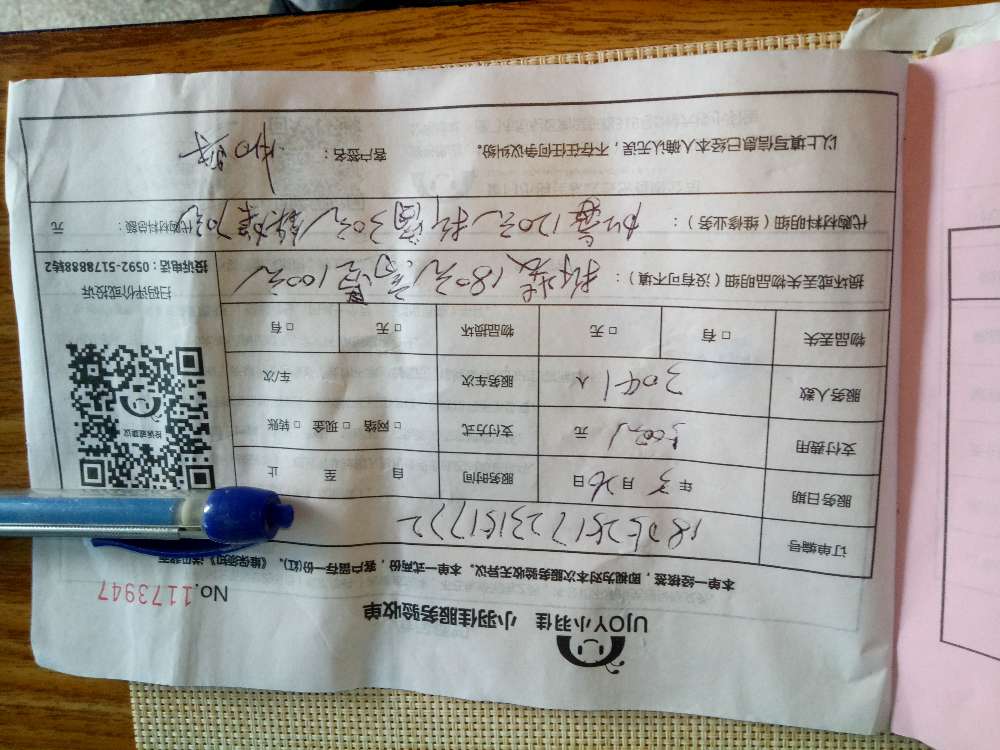 UJOY小羽佳 小羽佳服务验收单
No.1173947
本单一经核签,即视为对本次服务验收无异议。本单一式两份,客户留存一份(红)。《维保须知》
订单编号
服务日期 年 3 月 26 日 服务时间 自 至 止
支付费用 500 元 支付方式 □ 网络 □ 现金 □ 转账
服务人数 人 服务车次 车/次
物品丢失 □ 有 □ 无 物品损坏 □ 无 □ 有
投诉或建议
扫码评价或投诉
投诉电话:0592-5178888转2
损坏或丢失物品明细(没有可不填): 拆装180元 高空100元
代购材料明细(维修业务): 加氟120元 30元 70元 代购材料总额: 元
以上填写信息已经本人确认无误,不存在任何争议纠纷。 客户签名: